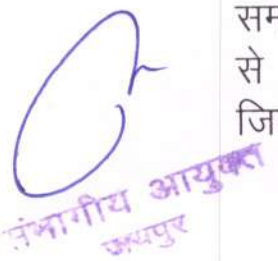 सम
से
जि
संभागीय आयुक्त
जयपुर